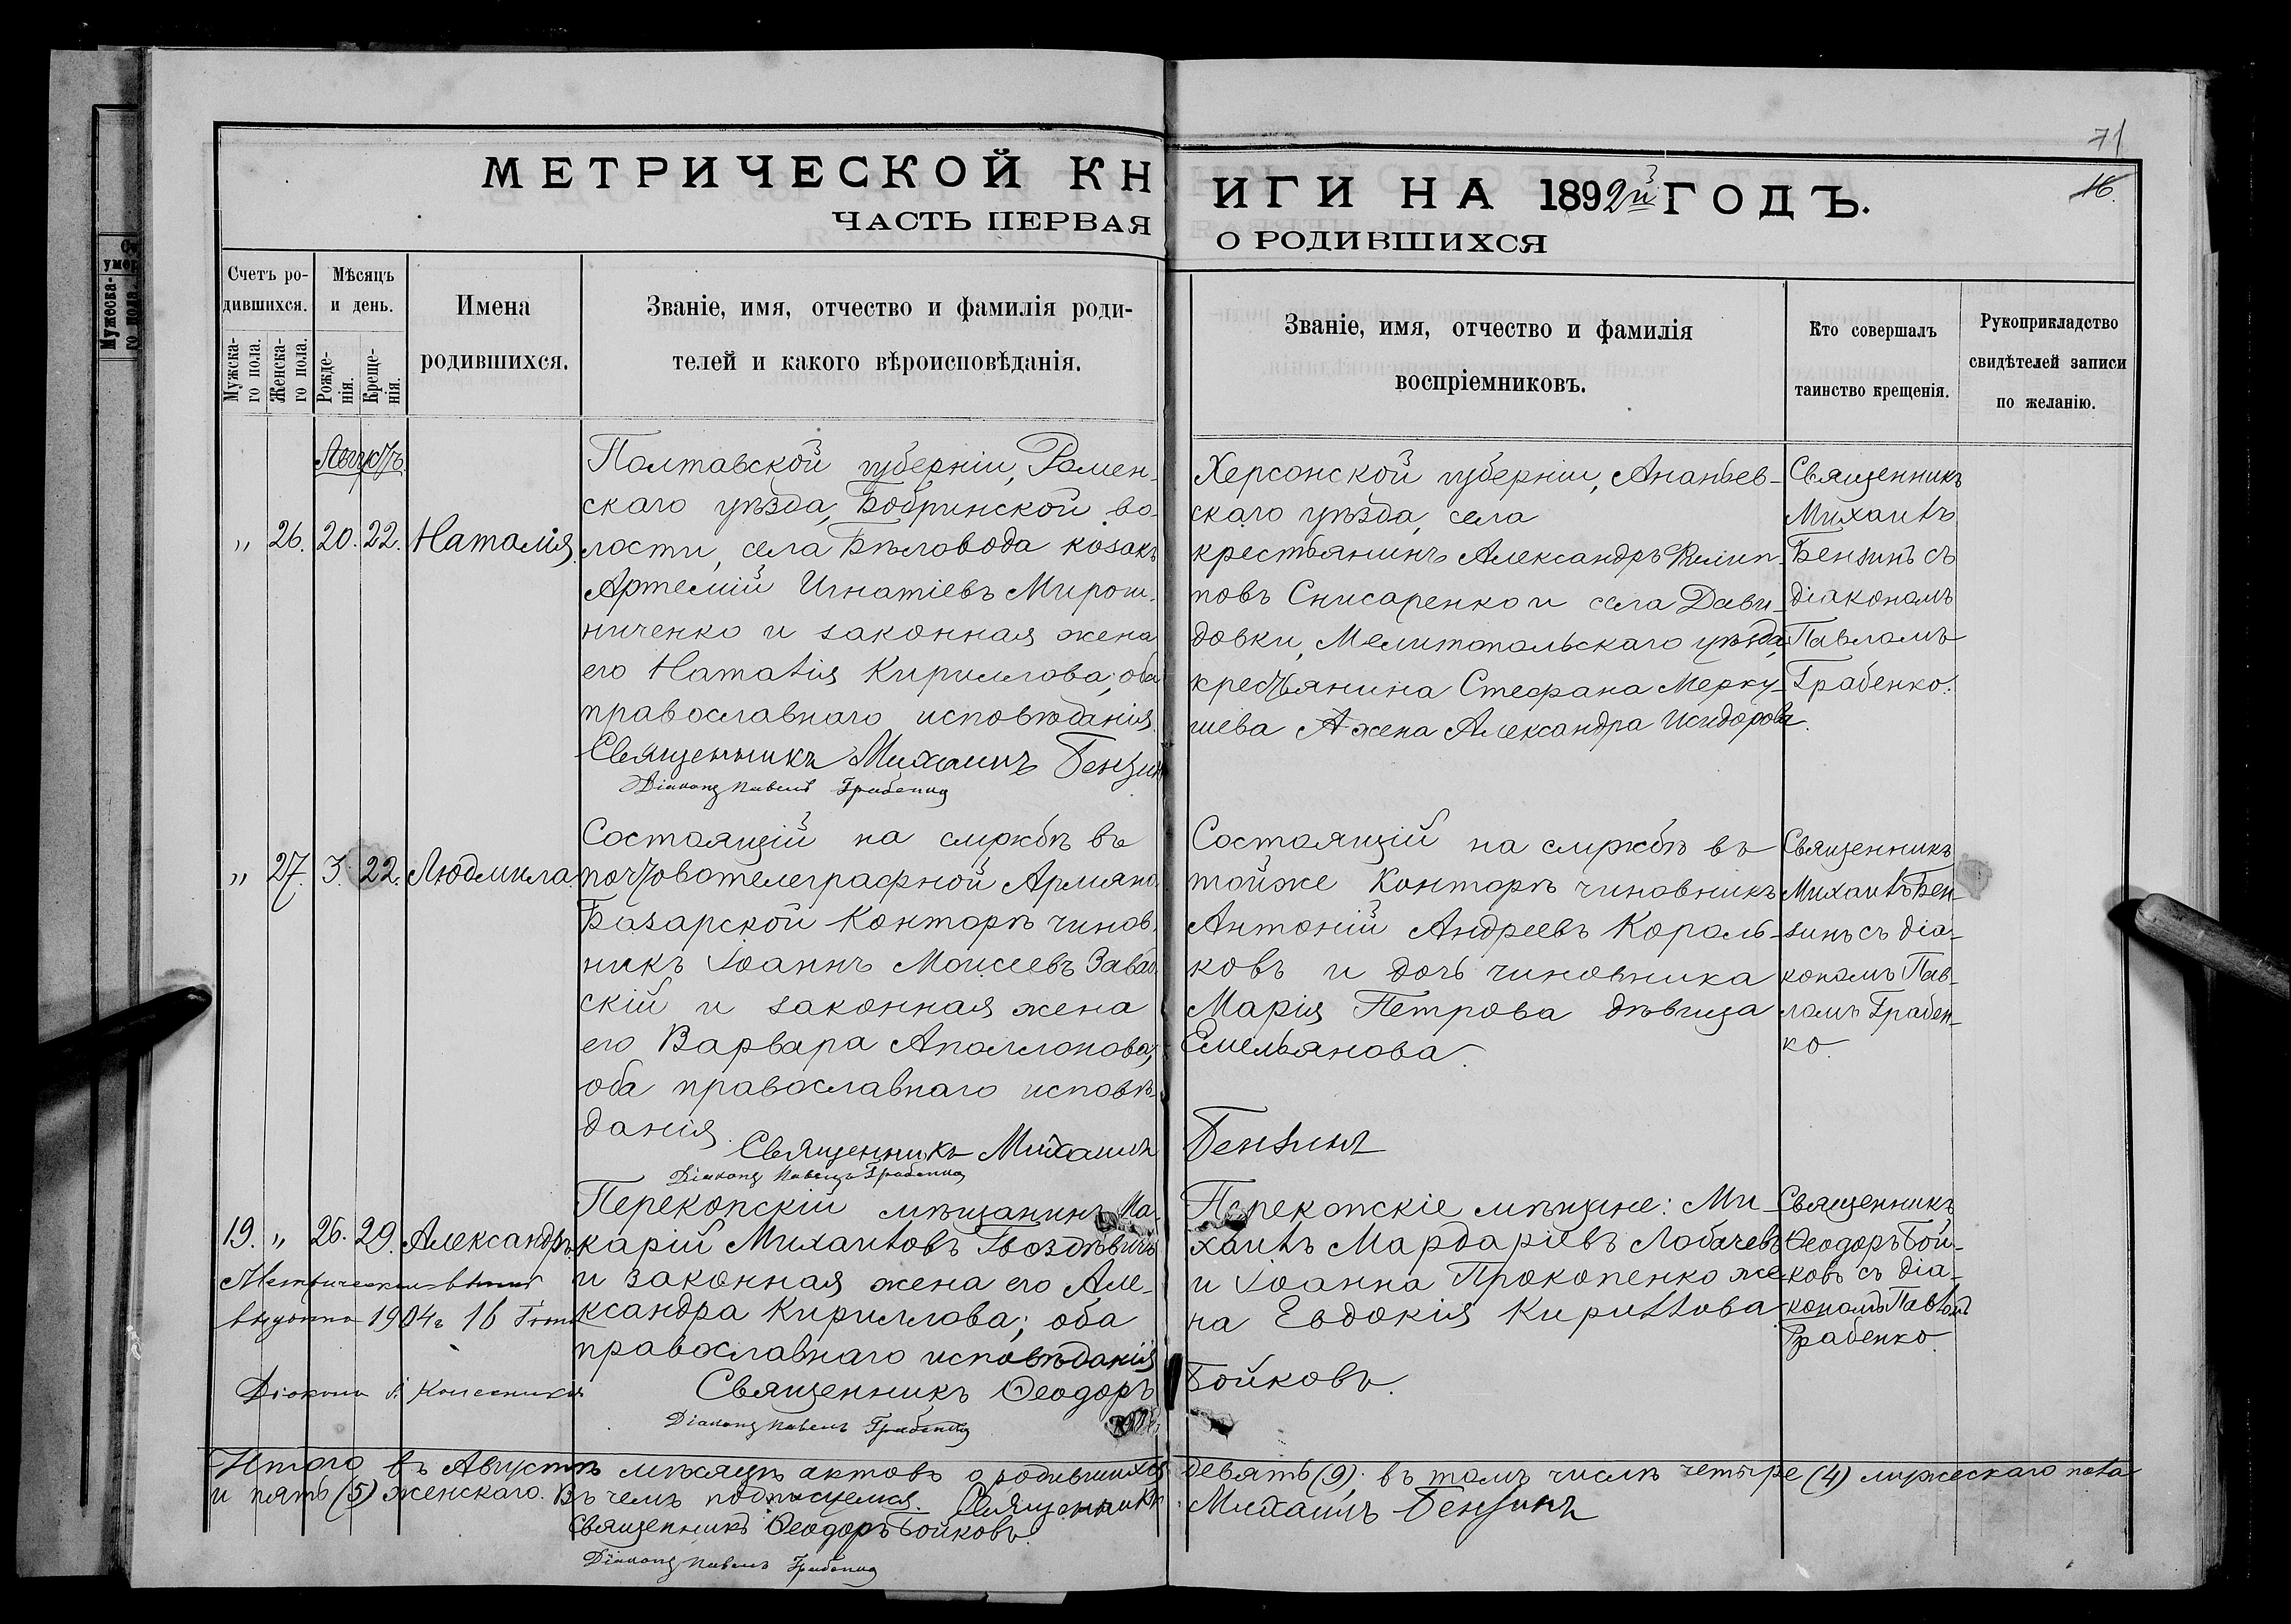 71
16.
МЕТРИЧЕСКОЙ КН
ИГИ НА 1892й ГОДЪ.
ЧАСТЬ ПЕРВАЯ
О РОДИВШИХСЯ
Счетъ ро-
дившихся.
Мужска-
го пола.
Женска-
го пола.
Мѣсяцъ
и день.
Рожде-
нія.
Креще-
нія.
Имена
родившихся.
Званіе, имя, отчество и фамилія роди-
телей и какого вѣроисповѣданія.
Званіе, имя, отчество и фамилія
воспріемниковъ.
Кто совершалъ
таинство крещенія.
Рукоприкладство
свидѣтелей записи
по желанію.
Августъ.
„ 26. 20. 22. Наталія.
Полтавской губерніи, Ромен-
скаго уѣзда, Бобринской во-
лости, села Бѣловода козакъ
Артемій Игнатіевъ Мирош-
ниченко и законная жена
его Наталія Кириллова; оба
православнаго исповѣданія.
Священникъ Михаилъ Бензинъ
Діаконъ Павелъ Грабенко
Херсонской губерніи, Ананьев-
скаго уѣзда, села
крестьянинъ Александръ Филип-
повъ Снисаренко и села Дави-
довки, Мелитопольскаго уѣзда,
крестьянина Стефана Мерку-
шева жена Александра Исидорова.
Священникъ
Михаилъ
Бензинъ съ
діакономъ
Павломъ
Грабенко.
„ 27. 3. 22. Людмила.
Состоящій на службѣ въ
почтовотелеграфной Армяно-
Базарской Конторѣ чинов-
никъ Іоаннъ Моисеевъ Завад-
скій и законная жена
его Варвара Аполлонова;
оба православнаго исповѣ-
данія.
Священникъ Михаилъ
Бензинъ
Діаконъ Павелъ Грабенко
Состоящій на службѣ въ
тойже Конторѣ чиновникъ
Антоній Андреевъ Король-
ковъ и дочь чиновника
Марія Петрова дѣвица
Емельянова.
Священникъ
Михаилъ Бен-
зинъ съ діа-
кономъ Пав-
ломъ Грабен-
ко.
19. „ 26. 29. Александръ.
выдана 1904г 16
Діаконъ
Перекопскій мѣщанинъ Ма-
карій Михаиловъ Гвоздѣвичъ
и законная жена его Але-
ксандра Кириллова; оба
православнаго исповѣданія
Священникъ Ѳеодоръ
Бойковъ.
Діаконъ Павелъ Грабенко
Перекопскіе мѣщане: Ми-
хаилъ Мардаріевъ Лобачевъ
и Іоанна Прокопенко же-
на Евдокія Кириллова
Священникъ
Ѳеодоръ Бой-
ковъ съ діа-
кономъ Павломъ
Грабенко.
Итого въ Августѣ мѣсяцѣ актовъ о родившихся девять (9); въ томъ числѣ четыре (4) мужескаго пола
и пять (5) женскаго. Въ чемъ подписуемся. Священникъ Михаилъ Бензинъ
Священникъ Ѳеодоръ Бойковъ.
Діаконъ Павелъ Грабенко